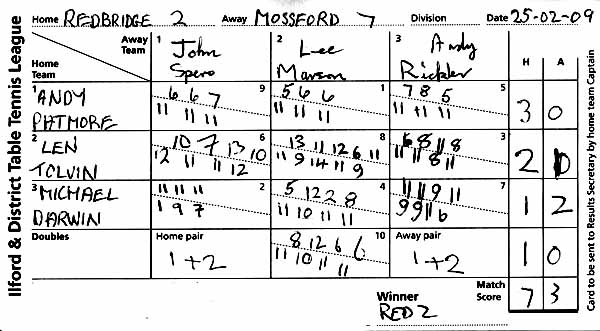 Ilford & District Table Tennis League
Home REDBRIDGE 2 Away MOSSFORD 7 Division Date 25-02-09
Away Team 1 John Spero 2 Lee Marson 3 Andy Rickler H A
Home Team
1 ANDY PATMORE 9 6 6 7 11 11 11 1 5 6 6 11 11 11 5 7 8 5 11 11 11 3 0
2 LEN TOLVIN 6 10 7 13 10 12 11 11 12 8 13 11 12 6 11 11 9 14 11 9 3 8 11 8 11 11 8 11 2
3 MICHAEL DARWIN 2 11 11 11 1 9 7 4 5 12 2 8 11 10 11 11 7 11 11 9 11 9 9 11 6 1 2
Doubles Home pair 1+2 10 8 12 6 6 11 10 11 11 Away pair 1+2 1 0
Winner RED 2 Match Score 7 3
Card to be sent to Results Secretary by home team Captain